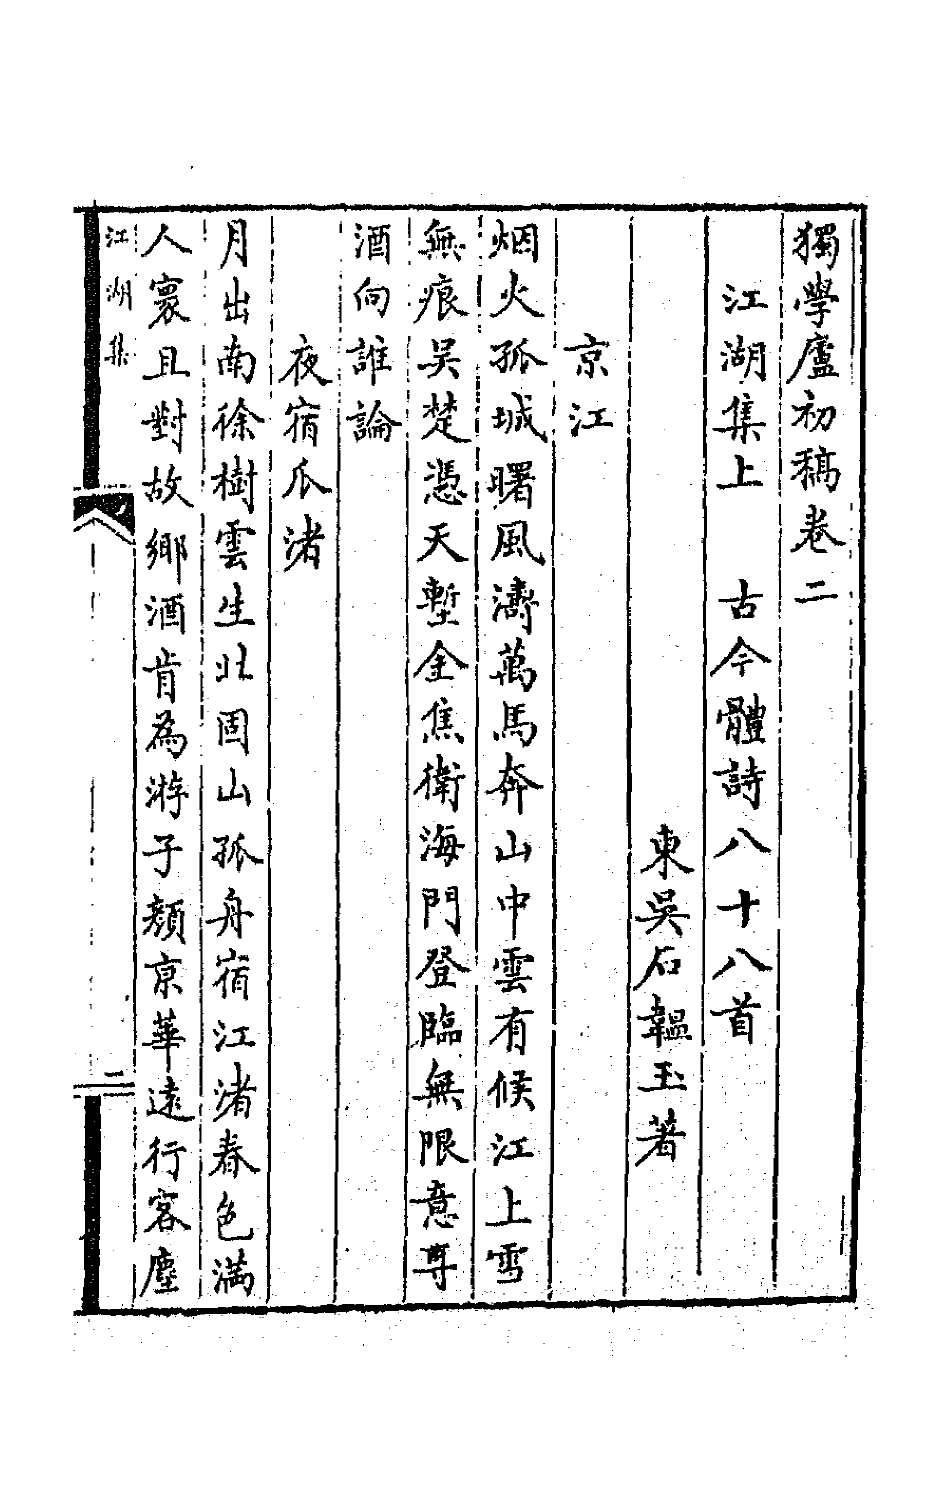 獨學廬初稿卷二
江湖集上　古今體詩八十八首
東吳石韞玉著
京江
烟火孤城曙風濤萬馬奔山中雲有候江上雪
無痕吳楚憑天塹金焦衛海門登臨無限意尊
酒向誰論
夜宿瓜渚
月出南徐樹雲生北固山孤舟宿江渚春色滿
人寰且對故鄉酒肯為游子顏京華遠行客塵
江湖集　二